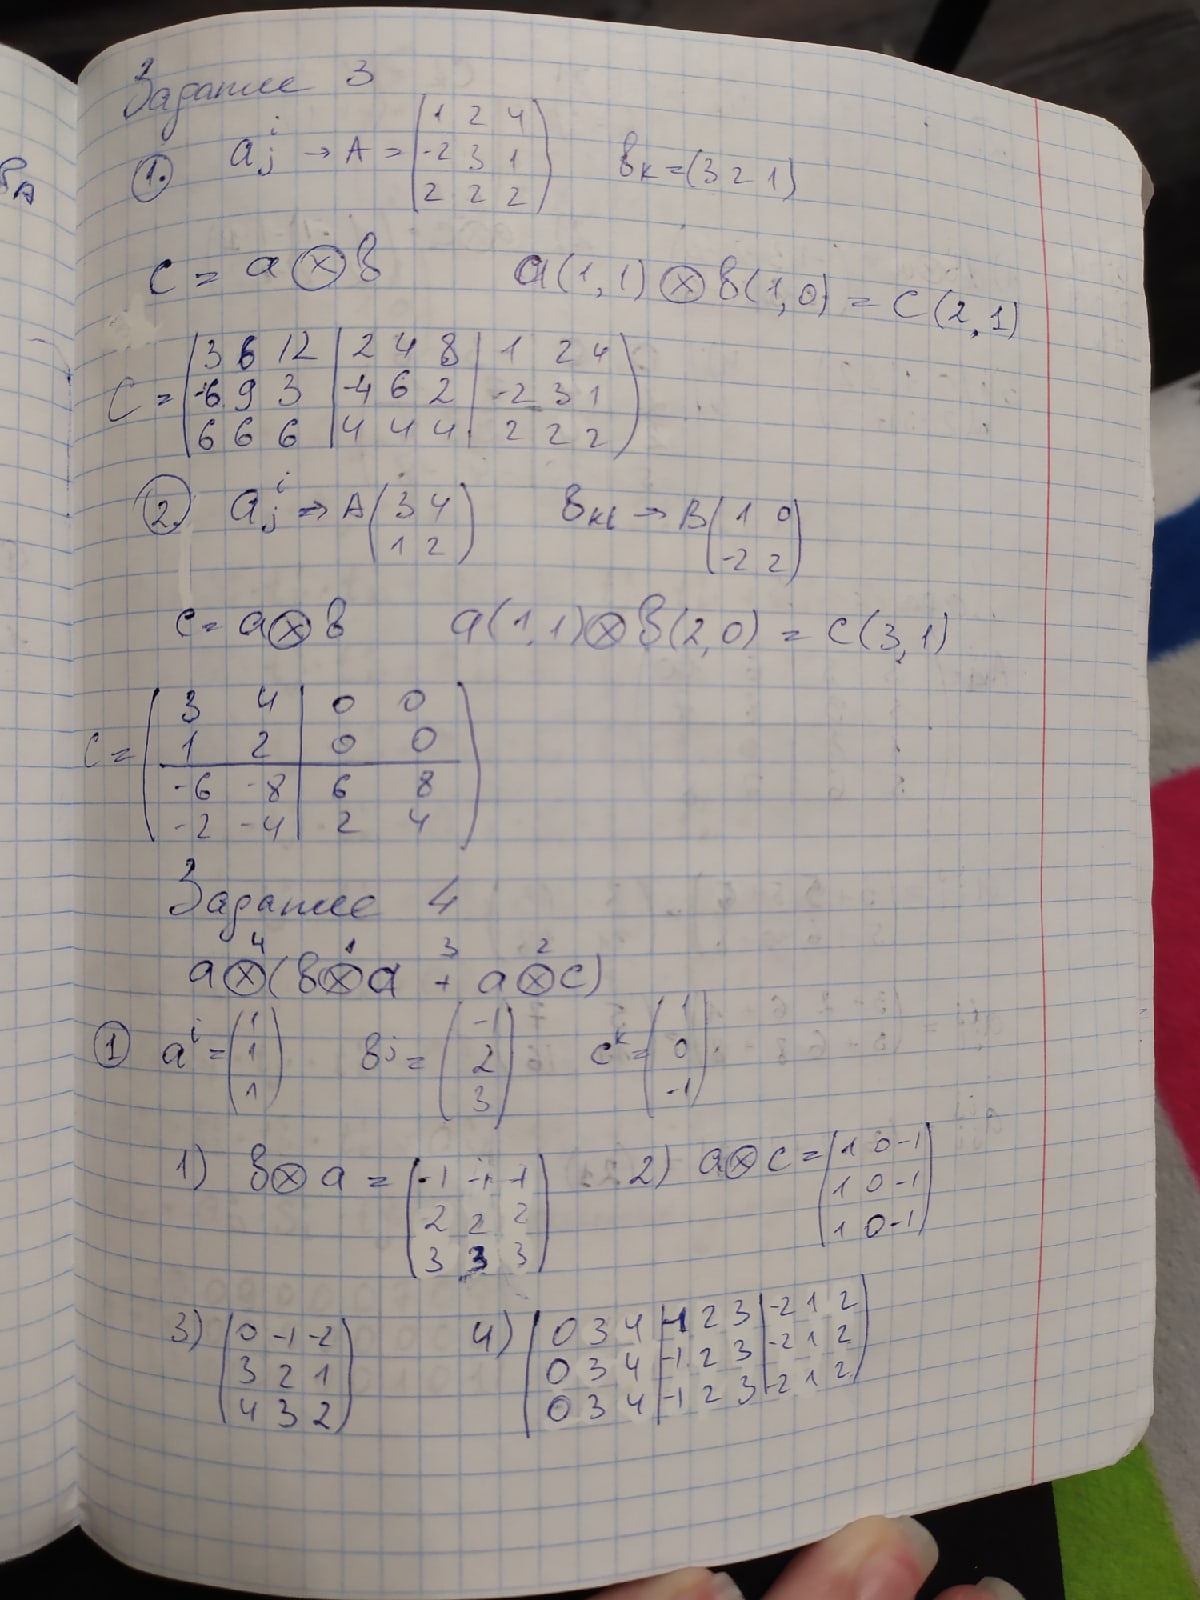 Задание 3
1. a^i_j → A = (1 2 4
-2 3 1
2 2 2) в_к = (3 2 1)
c = a ⊗ в a(1,1) ⊗ в(1,0) = C(2,1)
C = (3 6 12 | 2 4 8 | 1 2 4
-6 9 3 | -4 6 2 | -2 3 1
6 6 6 | 4 4 4 | 2 2 2)
2. a^i_j → A (3 4
1 2) в_kl → B (1 0
-2 2)
c = a ⊗ в a(1,1) ⊗ в(2,0) = c(3,1)
C = (3 4 | 0 0
1 2 | 0 0
-6 -8 | 6 8
-2 -4 | 2 4)
Задание 4
4 1 3 2
a ⊗ (в ⊗ a + a ⊗ c)
1 a^i = (1
1
1) в^j = (-1
2
3) c^к = (1
0
-1)
1) в ⊗ a = (-1 -1 -1
2 2 2
3 3 3) 2) a ⊗ c = (1 0 -1
1 0 -1
1 0 -1)
3) (0 -1 -2
3 2 1
4 3 2) 4) (0 3 4 | -1 2 3 | -2 1 2
0 3 4 | -1 2 3 | -2 1 2
0 3 4 | -1 2 3 | -2 1 2)